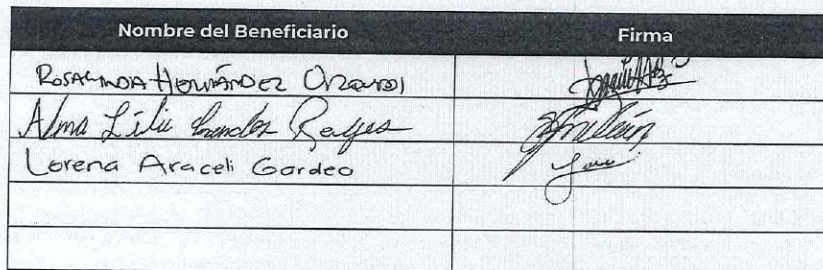 Nombre del Beneficiario Firma
ROSALINDA HERNÁNDEZ
Alma Lilia Reyes
Lorena Araceli Gordeo